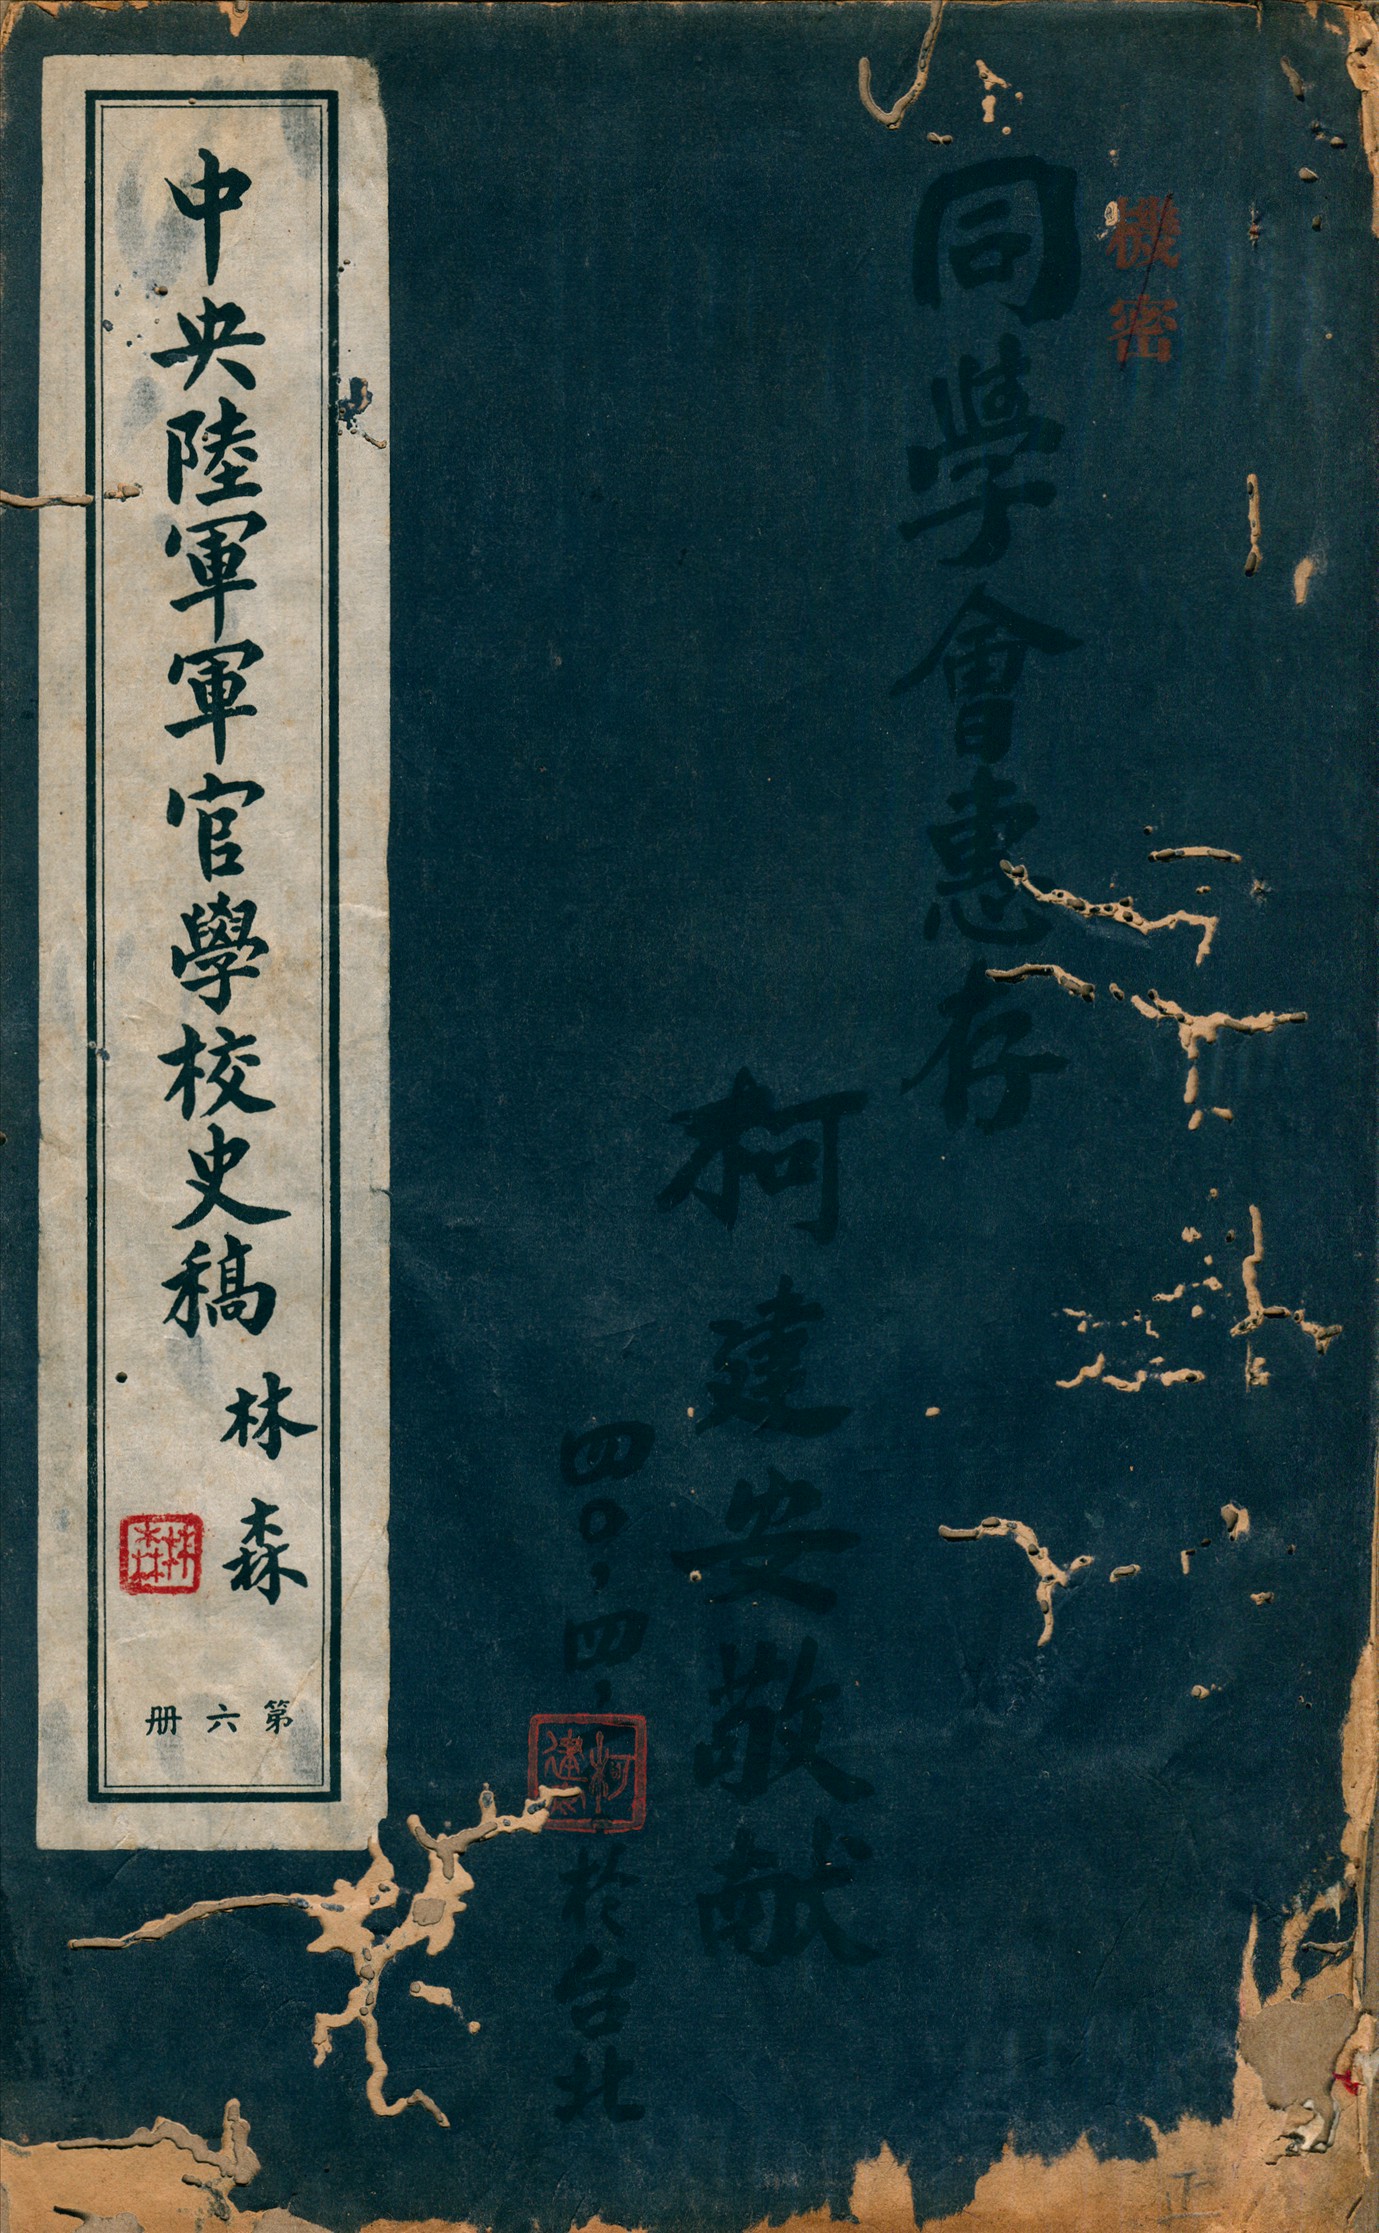 機密
同學會惠存
柯建安敬献
四〇.四.
柯建安
於台北
中央陸軍軍官學校史稿
林森
林森
第六册
正